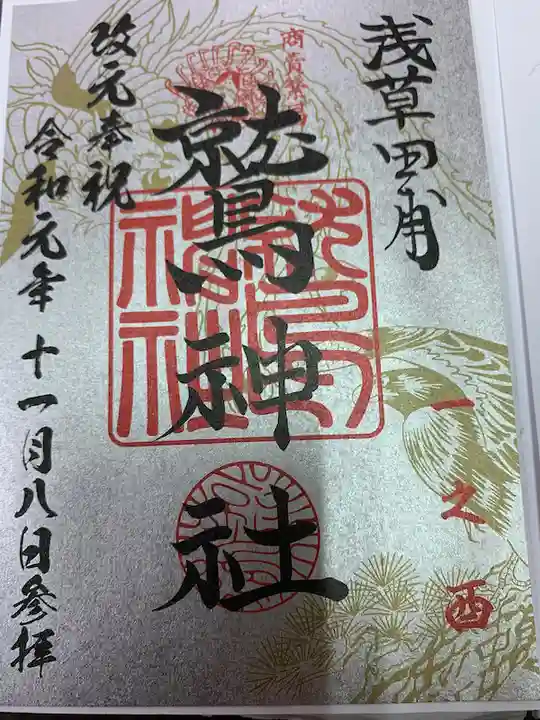 浅草田甫
一之酉
商売繁昌
鷲神社
改元奉祝
令和元年十一月八日参拝